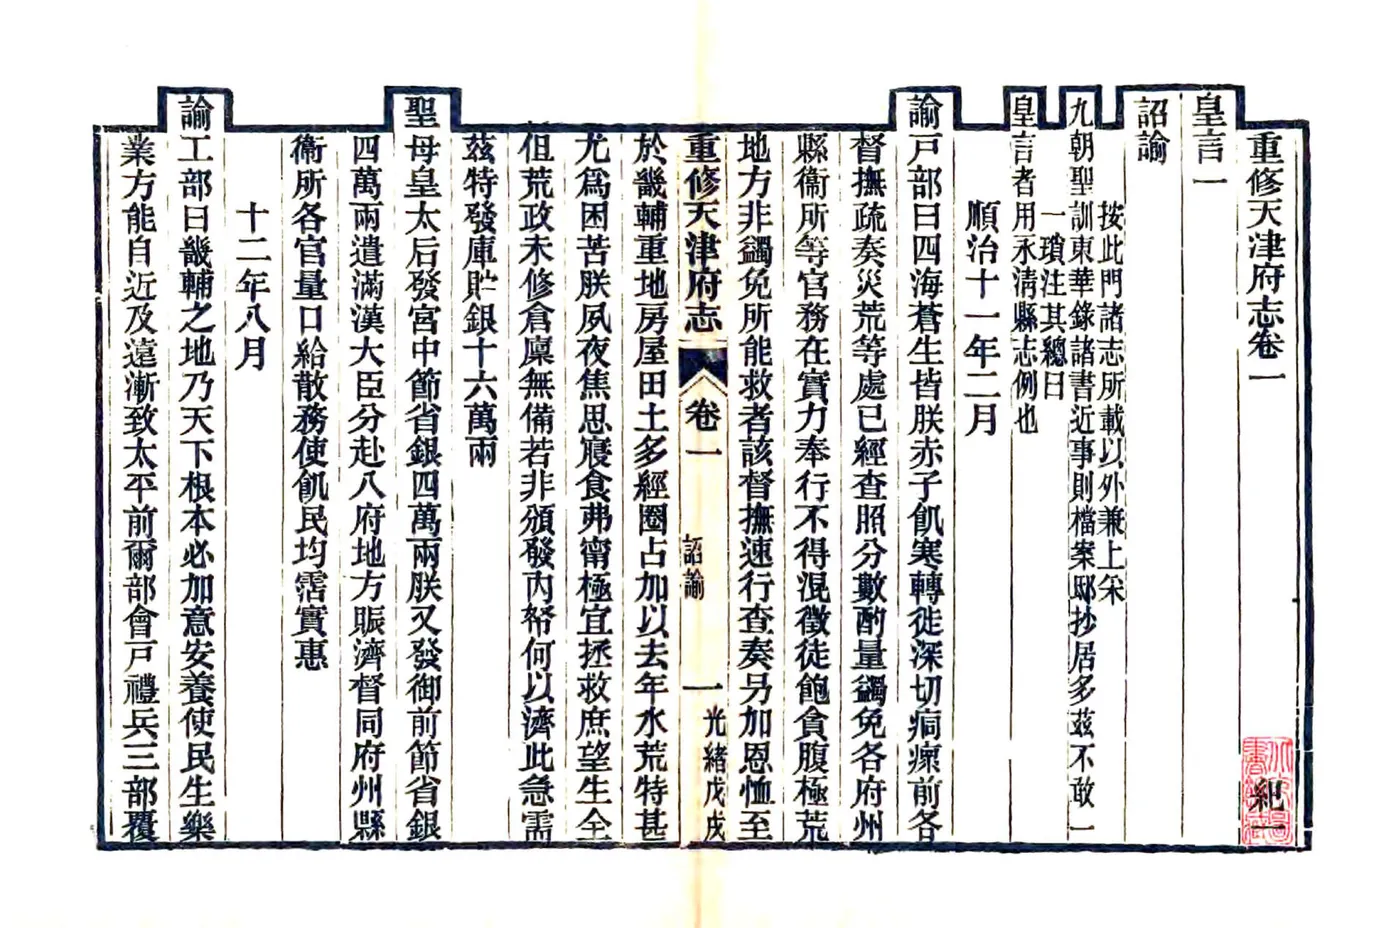 重修天津府志卷一 紀一
皇言一
詔諭
按此門諸志所載以外兼上采
九朝聖訓東華錄諸書近事則檔案邸抄居多茲不敢一
一瑣注其總曰
皇言者用永清縣志例也
順治十一年二月
諭戸部曰四海蒼生皆朕赤子飢寒轉徙深切痌瘝前各
督撫疏奏災荒等處已經查照分數酌量蠲免各府州
縣衞所等官務在實力奉行不得混徵徒飽貪腹極荒
地方非蠲免所能救者該督撫速行查奏另加恩恤至
重修天津府志 卷一 詔諭 一 光緒戊戌
於畿輔重地房屋田土多經圈占加以去年水荒特甚
尤爲困苦朕夙夜焦思寢食弗甯極宜拯救庶望生全
但荒政未修倉廩無備若非頒發內帑何以濟此急需
茲特發庫貯銀十六萬兩
聖母皇太后發宮中節省銀四萬兩朕又發御前節省銀
四萬兩遣滿漢大臣分赴八府地方賑濟督同府州縣
衞所各官量口給散務使飢民均霑實惠
十二年八月
諭工部曰畿輔之地乃天下根本必加意安養使民生樂
業方能自近及遠漸致太平前爾部會戸禮兵三部覆